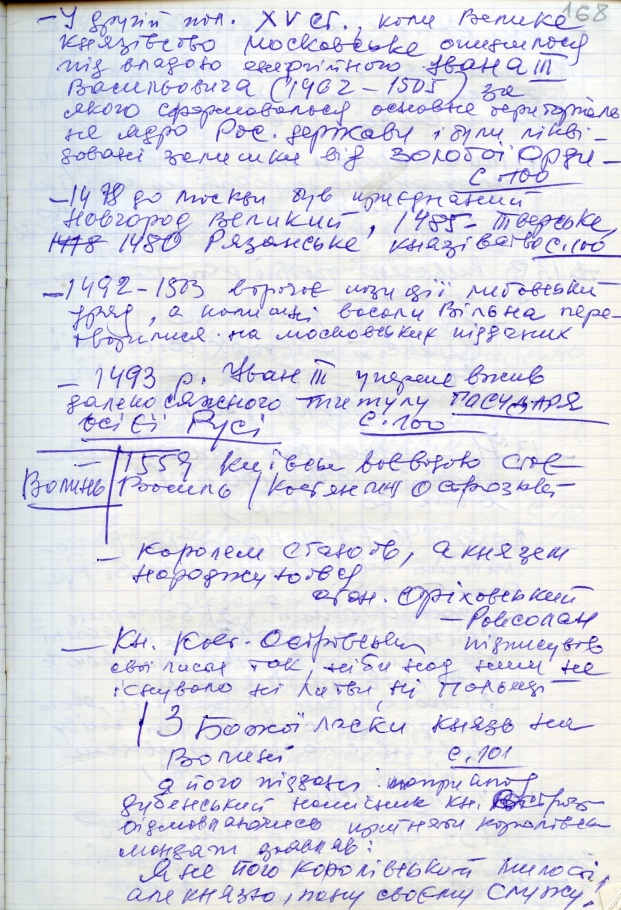 168
– У другій пол. XV ст., коли Велике
князівство московське опинилося
під владою енергійного Івана III
Васильовича (1462 – 1505) за
якого сформувалося основне територіаль
не ядро Рос. держави і були лікві-
довані залишки від Золотої Орди –
с. 100
– 1478 до Москви був приєднаний
Новгород Великий, 1485 – Тверське,
1478 1480 Рязанське князівство с. 100
– 1492 – 1503 втрачає позиції литовський
уряд, а колишні васали Вільна пере-
творилися на московських підданих
– 1493 р. Іван III уперше вжив
далекосяжного титулу государя
всієї Русі с. 100
– 1559 Київським воєводою стає
Волинь
Василь / Костянтин Острозький
– Королем стають, а князем
народжуються
Стан. Оріховський
– Роксолан
– Кн. Кост. підписував
свої листи так, ніби над ними не
існувало ні Литви, ні Польщі
/ З Божої ласки князь на
Волині с. 101
а його піддані наприклад
дубенський намісник кн.
відмовляючись прийняти королівськ
мандат заявляв:
Я не його королівській милості,
але князю, пану своєму служу!